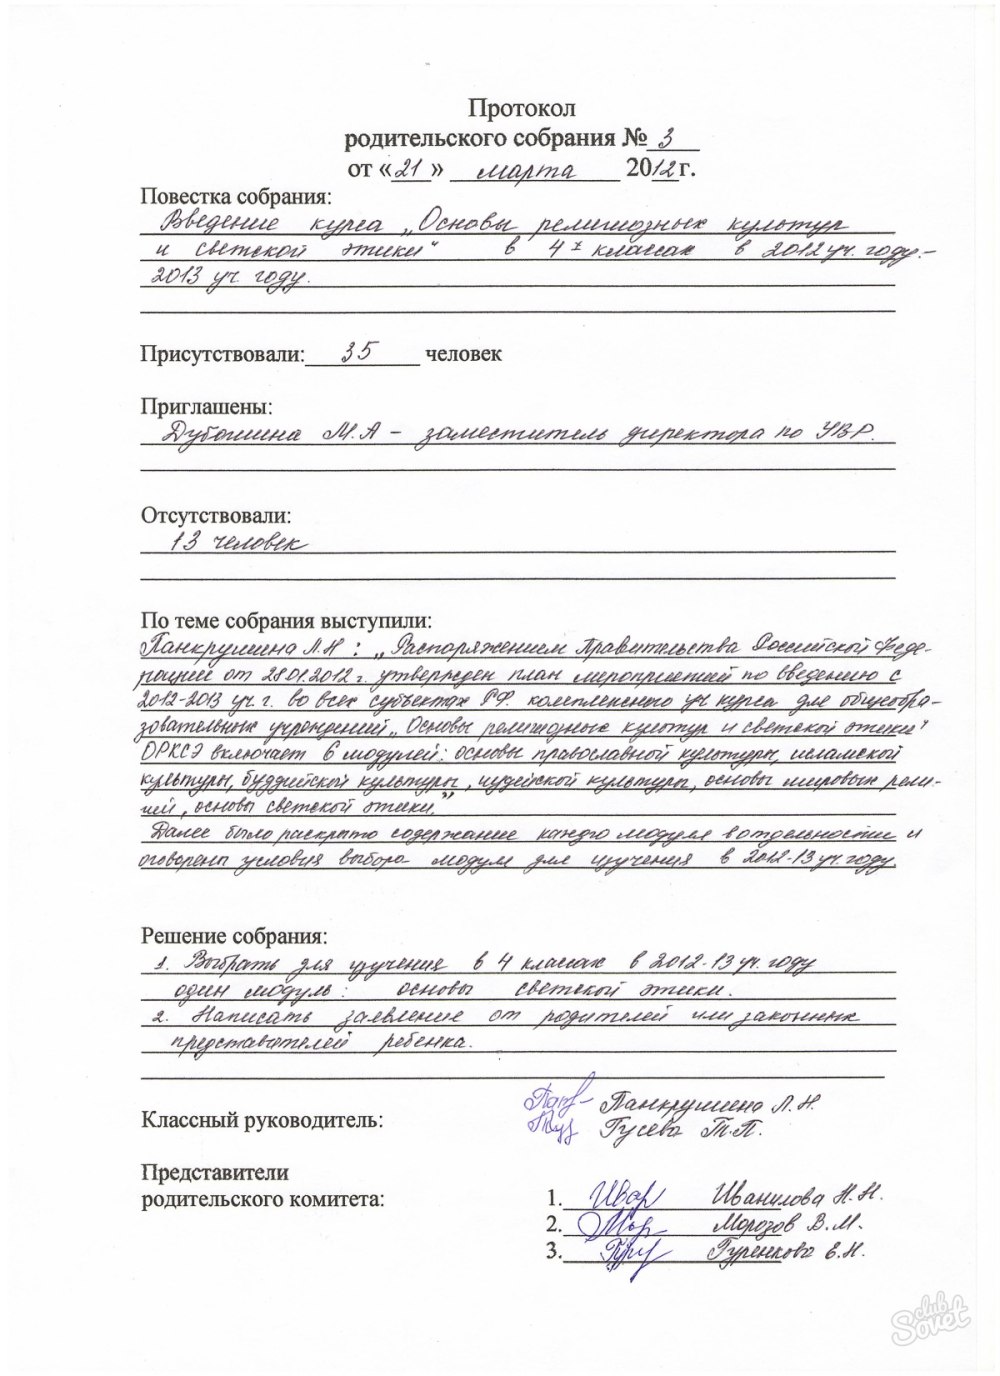 Протокол
родительского собрания № 3
от «21» марта 2012г.
Повестка собрания:
Введение курса „Основы религиозных культур
и светской этики" в 4х классах в 2012 уч. году.-
2013 уч. году.
Присутствовали: 35 человек
Приглашены:
Дубошина М.А – заместитель директора по УВР.
Отсутствовали:
13 человек
По теме собрания выступили:
Панкрушина Л.Н : „Распоряжением Правительства Российской Феде-
рацией от 28.01.2012 г. утвержден план мероприятий по введению с
2012-2013 уч. г. во всех субъектах РФ. комплексного уч курса для общеобра-
зовательных учреждений „Основы религиозных культур и светской этики"
ОРКСЭ включает 6 модулей: основы православной культуры, исламской
культуры, буддийской культуры, иудейской культуры, основы мировых рели-
гий, основы светской этики."
Далее было раскрыто содержание каждого модуля в отдельности и
оговорены условия выбора модуля для изучения в 2012-13 уч. году.
Решение собрания:
1. Выбрать для изучения в 4 классах в 2012-13 уч. году
один модуль : основы светской этики.
2. Написать заявление от родителей или законных
представителей ребенка.
Классный руководитель: Панкрушина Л.Н.
Гусева Т.П.
Представители
родительского комитета: 1. Иванилова Н.Н.
2. Морозов В.М.
3. Гуренкова Е.Н.
club
Sovet